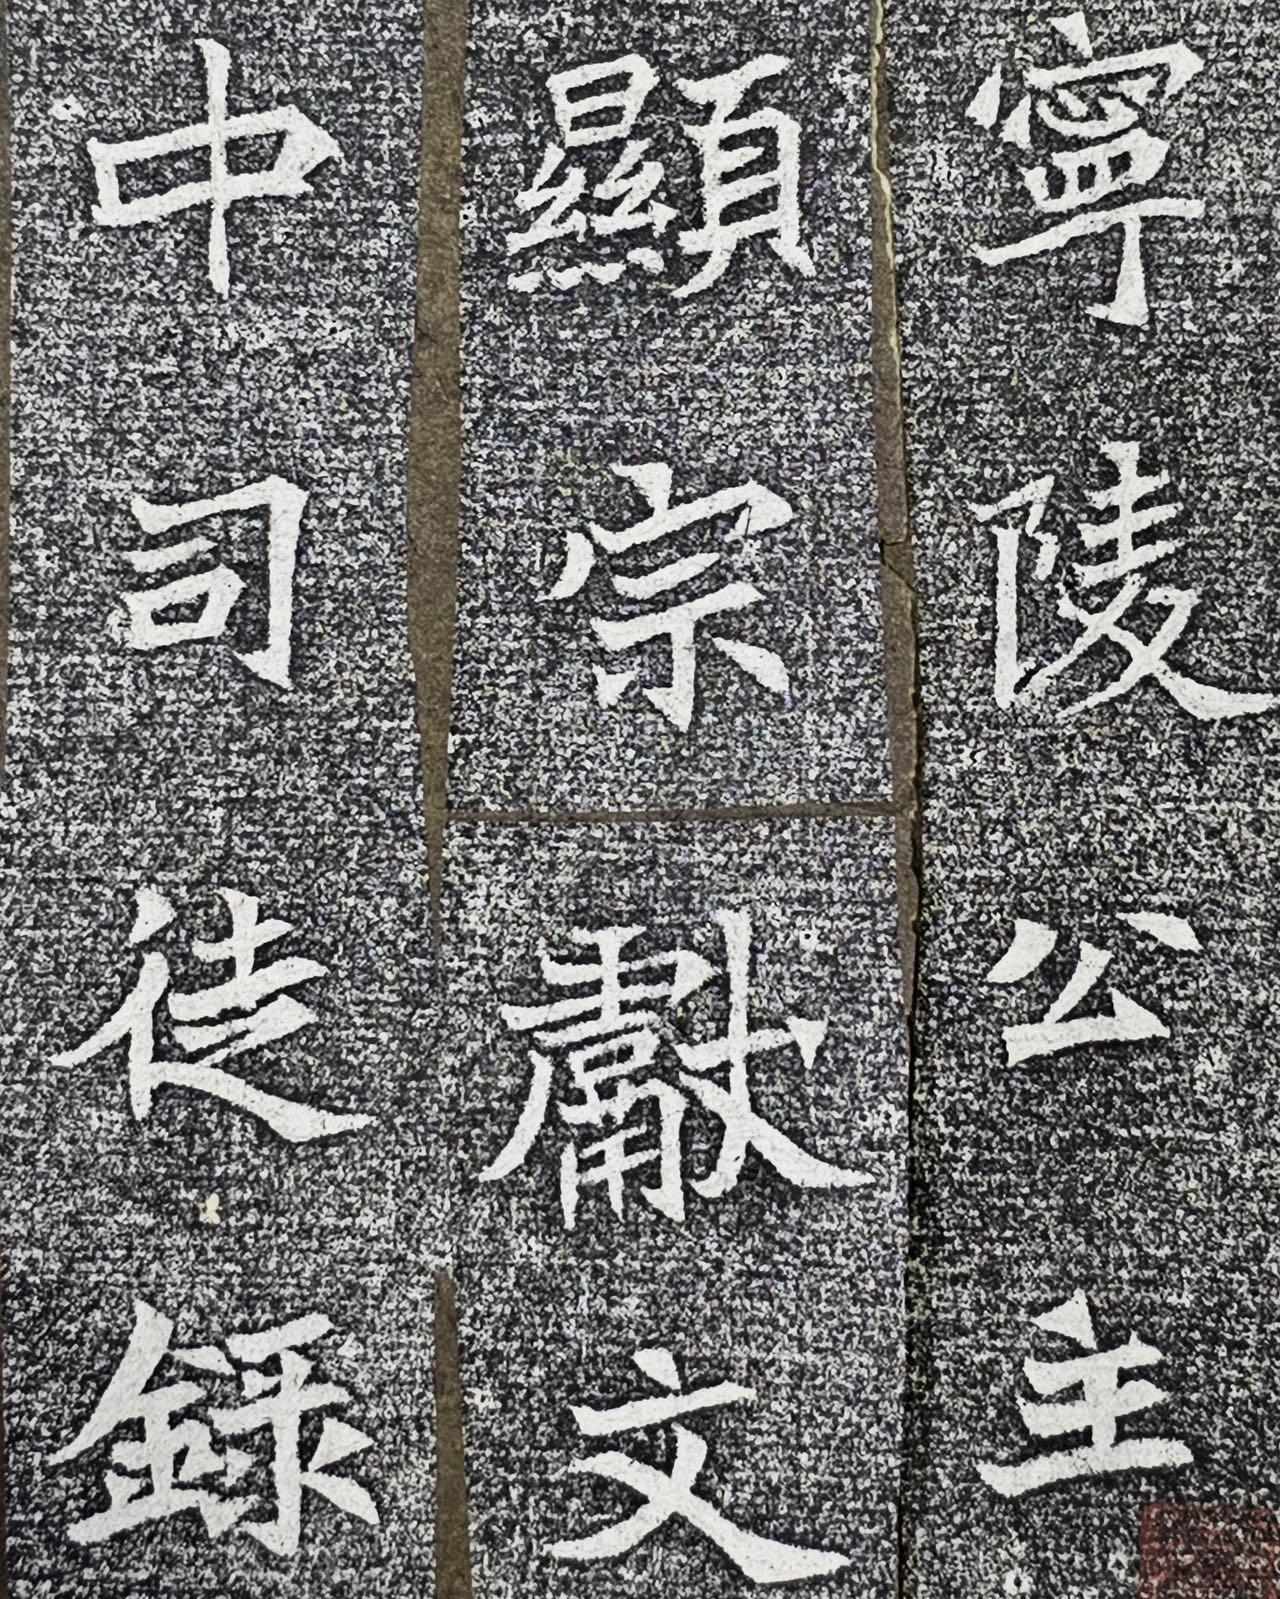 寧陵公主
顯宗獻文
中司徒錄